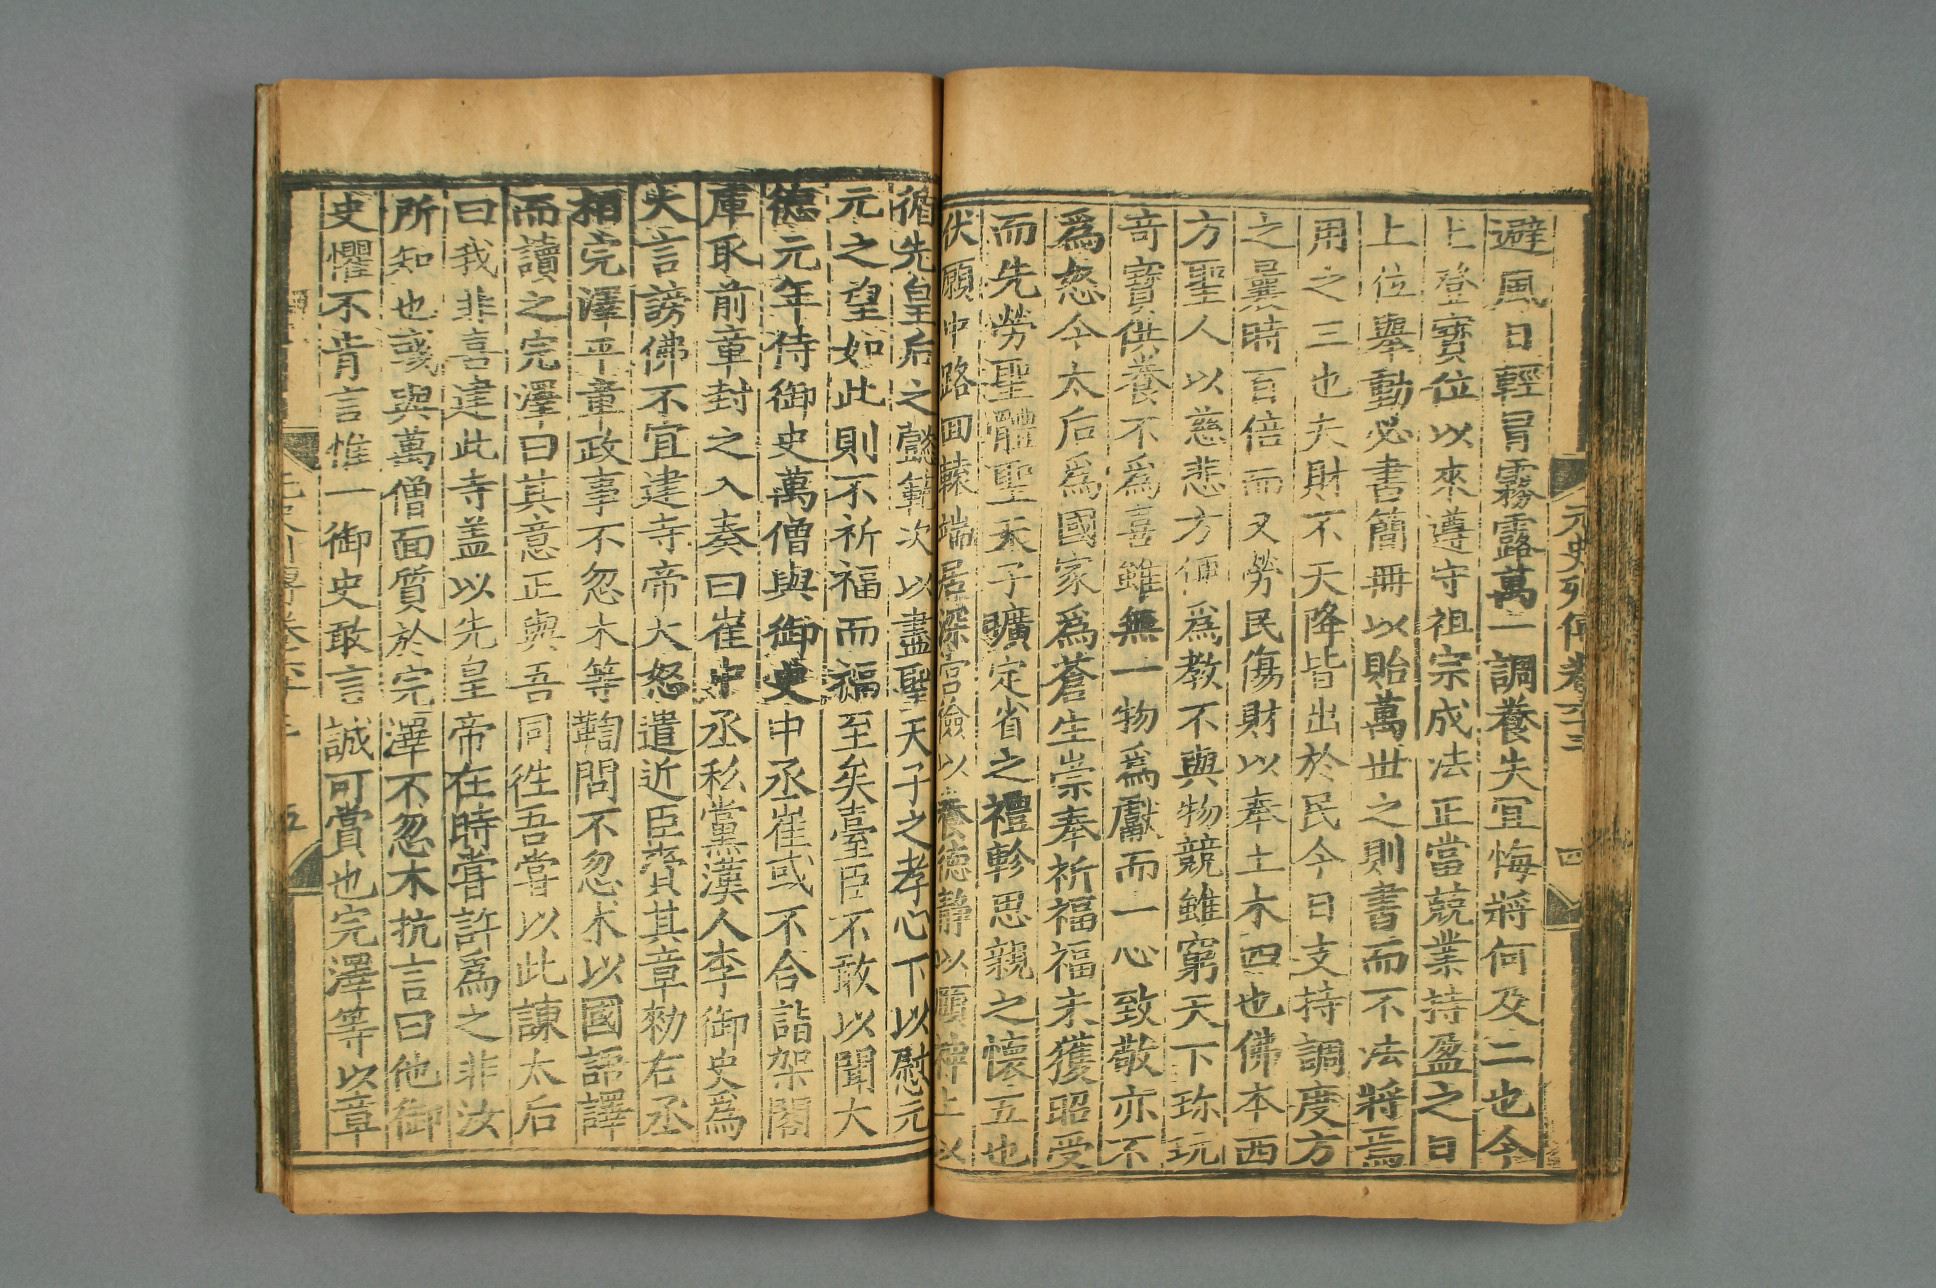 元史列傳卷六十三
四
避風日輕冒霧露萬一調養失宜悔將何及二也今
上登寶位以來遵守祖宗成法正當兢業持盈之日
上位舉動必書簡冊以貽萬世之則書而不法將焉
用之三也夫財不天降皆出於民今日支持調度方
之曩時百倍而又勞民傷財以奉土木四也佛本西
方聖人以慈悲方便爲教不與物競雖窮天下珎玩
竒寶供養不爲喜雖無一物爲獻而一心致敬亦不
爲怒今太后爲國家爲蒼生崇奉祈福福未獲昭受
而先勞聖體聖天子曠定省之禮軫思親之懷五也
伏願中路回轅端居深宮儉以養德靜以頤神上以
循先皇后之懿範次以盡聖天子之孝心下以慰元
元之望如此則不祈福而福至矣臺臣不敢以聞大
德元年侍御史萬僧與御史中丞崔彧不合詣架閣
庫取前章封之入奏曰崔中丞私黨漢人李御史爲
大言謗佛不宜建寺帝大怒遣近臣賫其章勑右丞
相完澤平章政事不忽木等鞫問不忽木以國語譯
而讀之完澤曰其意正與吾同徃吾甞以此諫太后
曰我非喜建此寺盖以先皇帝在時甞許爲之非汝
所知也彧與萬僧面質於完澤不忽木抗言曰他御
史懼不肯言惟一御史敢言誠可賞也完澤等以章
五